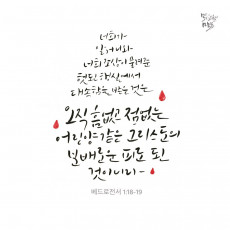 너희가
알거니와
너희 조상이 물려준
헛된 행실에서
대속함을 받은 것은
오직 흠없고 점없는
어린양 같은 그리스도의
보배로운 피로 된
것이니라-
베드로전서 1:18-19